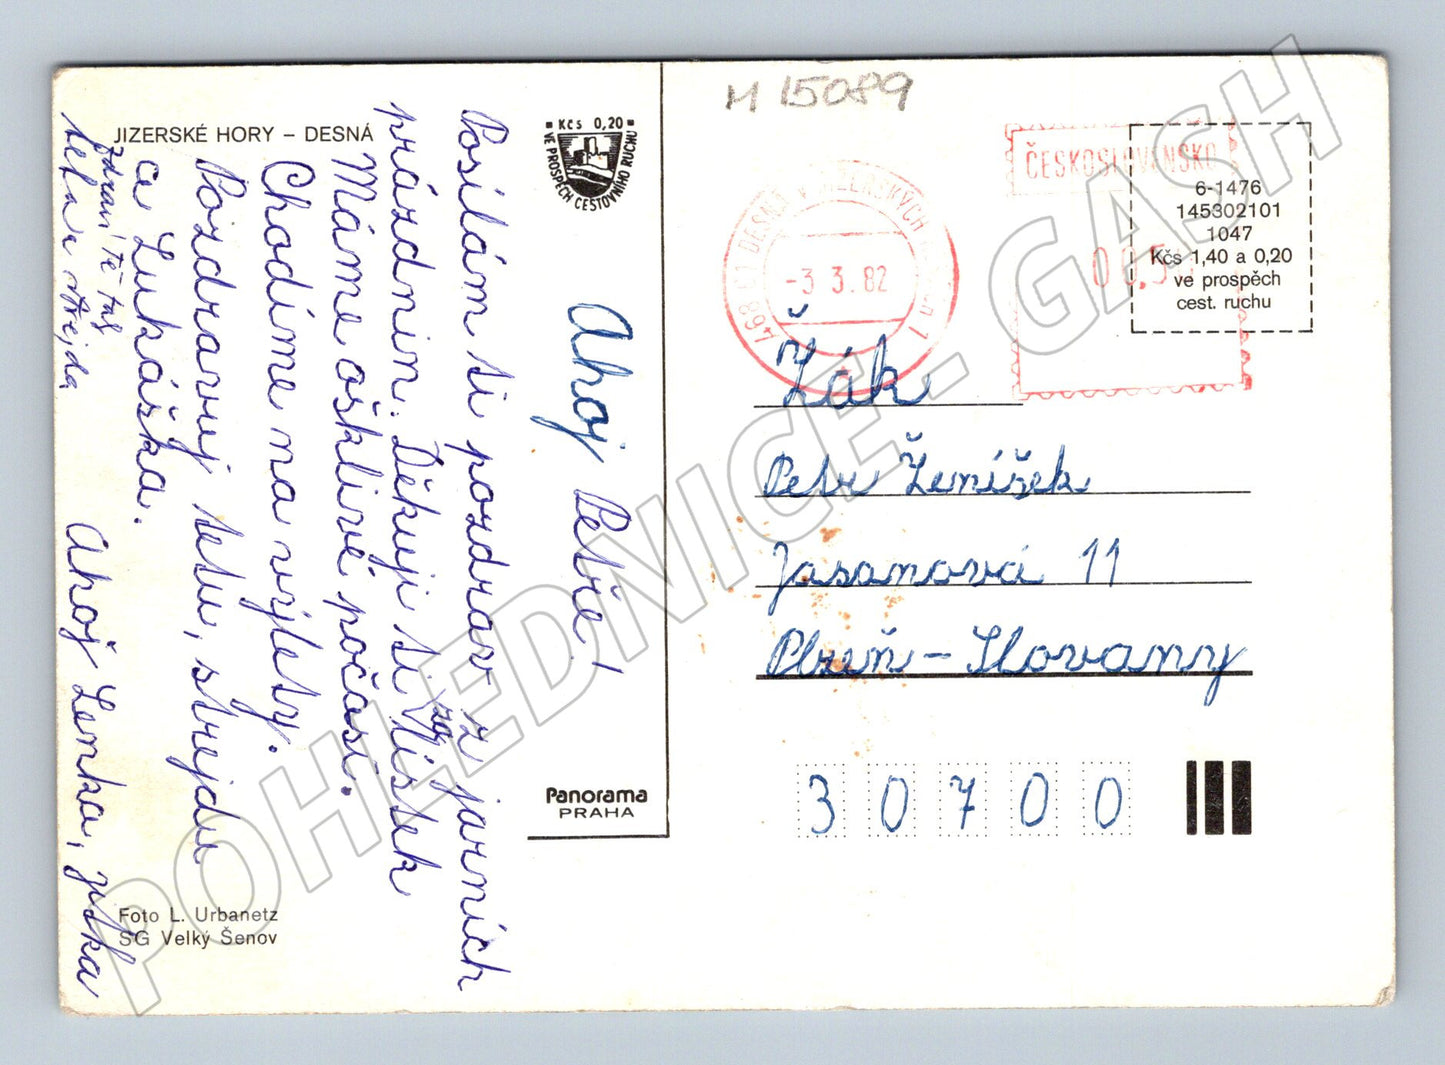 JIZERSKÉ HORY – DESNÁ
Kčs 0,20
VE PROSPĚCH CESTOVNÍHO RUCHU
Ahoj Petře!
Posílám ti pozdrav z jarních
prázdnin. Děkuji ti za lístek
Máme ošklivé počasí.
Chodíme na výlety.
Pozdravuj tetu, strejdu
a Lukáška.
Ahoj Lenka, Jitka
zdraví tě taky
teta i strejda
Foto L. Urbanetz
SG Velký Šenov
Panorama
PRAHA
M 15089
468 61 DESNÁ V JIZERSKÝCH
-3 3.82
ČESKOSLOVENSKO
6-1476
145302101
1047
Kčs 1,40 a 0,20
ve prospěch
cest. ruchu
Žák
Petr Žemíšek
Jasanová 11
Plzeň – Slovany
30700
POHLEDNICE - GASH